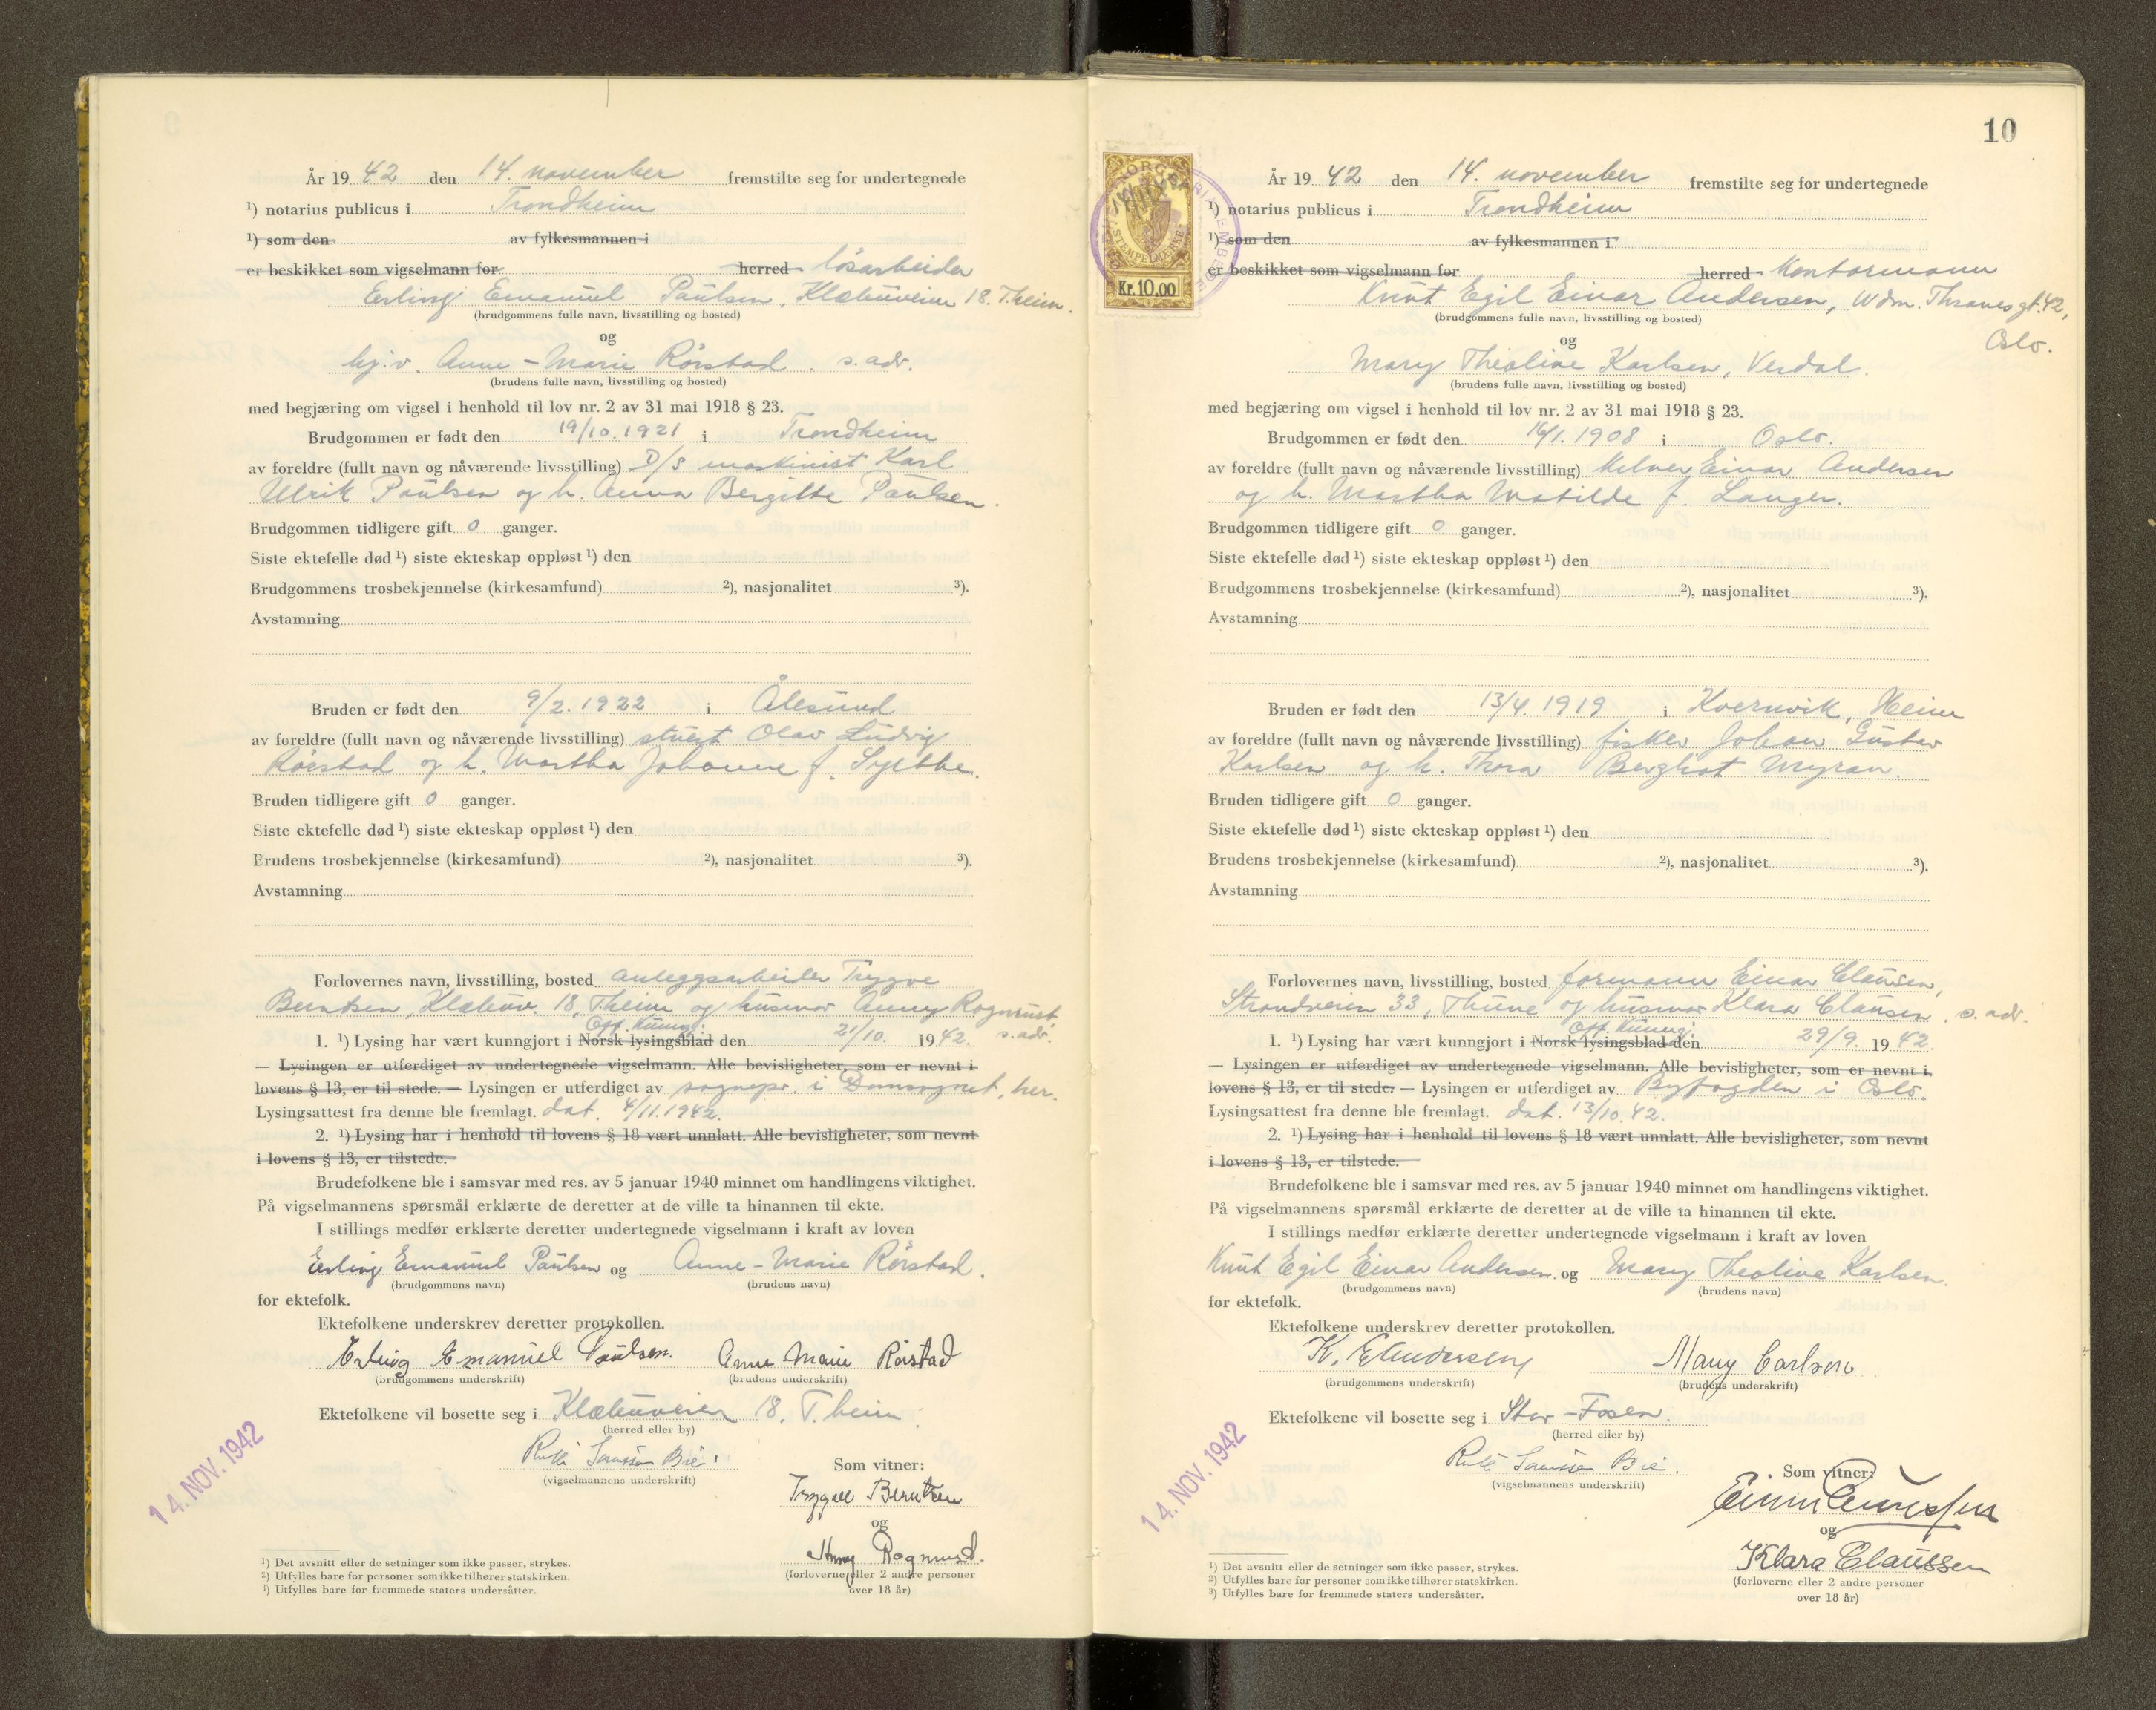 År 19 42 den 14. november fremstilte seg for undertegnede
¹) notarius publicus i Trondheim
¹) som den av fylkesmannen i
er beskikket som vigselmann for herred løsarbeider
Erling Emanuel Paulsen, Klæbuveien 18. T.heim.
(brudgommens fulle navn, livsstilling og bosted)
og
hj.v. Anne-Marie Rörstad. s. adr.
(brudens fulle navn, livsstilling og bosted)
med begjæring om vigsel i henhold til lov nr. 2 av 31 mai 1918 § 23.
Brudgommen er født den 19/10. 1921 i Trondheim
av foreldre (fullt navn og nåværende livsstilling) D/S maskinist Karl
Ulrik Paulsen og h. Anna Bergitte Paulsen.
Brudgommen tidligere gift 0 ganger.
Siste ektefelle død ¹) siste ekteskap oppløst ¹) den
Brudgommens trosbekjennelse (kirkesamfund) ²), nasjonalitet ³).
Avstamning
Bruden er født den 9/2. 1922 i Ålesund
av foreldre (fullt navn og nåværende livsstilling) stuert Olav Ludvig
Rörstad og h. Martha Johanne f.
Bruden tidligere gift 0 ganger.
Siste ektefelle død ¹) siste ekteskap oppløst ¹) den
Brudens trosbekjennelse (kirkesamfund) ²), nasjonalitet ³).
Avstamning
Forlovernes navn, livsstilling, bosted anleggsarbeider Trygve
Berntsen, Klæbuv. 18, T.heim og husmor Anny Rognmut
s. adr.
Off. Kunng.
1. ¹) Lysing har vært kunngjort i Norsk lysingsblad den 21/10. 19 42.
— Lysingen er utferdiget av undertegnede vigselmann. Alle bevisligheter, som er nevnt i
lovens § 13, er til stede. — Lysingen er utferdiget av sognepr. i Domsognet, her.
Lysingsattest fra denne ble fremlagt. dat. 4/11. 1942.
2. ¹) Lysing har i henhold til lovens § 18 vært unnlatt. Alle bevisligheter, som nevnt
i lovens § 13, er tilstede.
Brudefolkene ble i samsvar med res. av 5 januar 1940 minnet om handlingens viktighet.
På vigselmannens spørsmål erklærte de deretter at de ville ta hinannen til ekte.
I stillings medfør erklærte deretter undertegnede vigselmann i kraft av loven
Erling Emanuel Paulsen og Anne-Marie Rörstad.
(brudgommens navn) (brudens navn)
for ektefolk.
Ektefolkene underskrev deretter protokollen.
Erling Emanuel Paulsen. Anne Marie Rörstad
(brudgommens underskrift) (brudens underskrift)
Ektefolkene vil bosette seg i Klæbuveien 18. T.heim.
(herred eller by)
14. NOV. 1942
Bie.
(vigselmannens underskrift)
Som vitner:
Trygve Berntsen
og
(forloverne eller 2 andre personer
over 18 år)
¹) Det avsnitt eller de setninger som ikke passer, strykes.
²) Utfylles bare for personer som ikke tilhører statskirken.
³) Utfylles bare for fremmede staters undersåtter.
10
NORGE
STEMPELMERKE
Kr. 10.00
År 19 42 den 14. november fremstilte seg for undertegnede
¹) notarius publicus i Trondheim
¹) som den av fylkesmannen i
er beskikket som vigselmann for herred Kontormann
Knut Egil Einar Andersen, Wdm. Thranes gt. 42,
Oslo.
(brudgommens fulle navn, livsstilling og bosted)
og
Mary Theoline Karlsen, Verdal.
(brudens fulle navn, livsstilling og bosted)
med begjæring om vigsel i henhold til lov nr. 2 av 31 mai 1918 § 23.
Brudgommen er født den 16/1. 1908 i Oslo.
av foreldre (fullt navn og nåværende livsstilling) Einar Andersen
og h. Martha Matilde f. Langer.
Brudgommen tidligere gift 0 ganger.
Siste ektefelle død ¹) siste ekteskap oppløst ¹) den
Brudgommens trosbekjennelse (kirkesamfund) ²), nasjonalitet ³).
Avstamning
Bruden er født den 13/4. 1919 i Kvernvik, Heim
av foreldre (fullt navn og nåværende livsstilling) fisker Johan Gustav
Karlsen og h. Thora Berghat Myran.
Bruden tidligere gift 0 ganger.
Siste ektefelle død ¹) siste ekteskap oppløst ¹) den
Brudens trosbekjennelse (kirkesamfund) ²), nasjonalitet ³).
Avstamning
Forlovernes navn, livsstilling, bosted formann Einar Clausen,
Strandveien 33, og husmor Klara Clausen. s. adr.
Off. Kunng.
1. ¹) Lysing har vært kunngjort i Norsk lysingsblad den 29/9. 19 42.
— Lysingen er utferdiget av undertegnede vigselmann. Alle bevisligheter, som er nevnt i
lovens § 13, er til stede. — Lysingen er utferdiget av Byfogden i Oslo.
Lysingsattest fra denne ble fremlagt. dat. 13/10. 42.
2. ¹) Lysing har i henhold til lovens § 18 vært unnlatt. Alle bevisligheter, som nevnt
i lovens § 13, er tilstede.
Brudefolkene ble i samsvar med res. av 5 januar 1940 minnet om handlingens viktighet.
På vigselmannens spørsmål erklærte de deretter at de ville ta hinannen til ekte.
I stillings medfør erklærte deretter undertegnede vigselmann i kraft av loven
Knut Egil Einar Andersen. og Mary Theoline Karlsen.
(brudgommens navn) (brudens navn)
for ektefolk.
Ektefolkene underskrev deretter protokollen.
K. E Andersen Mary Carlsen
(brudgommens underskrift) (brudens underskrift)
Ektefolkene vil bosette seg i Stor-Fosen.
(herred eller by)
14. NOV. 1942
Bie.
(vigselmannens underskrift)
Som vitner:
og
Klara Claussen
(forloverne eller 2 andre personer
over 18 år)
¹) Det avsnitt eller de setninger som ikke passer, strykes.
²) Utfylles bare for personer som ikke tilhører statskirken.
³) Utfylles bare for fremmede staters undersåtter.